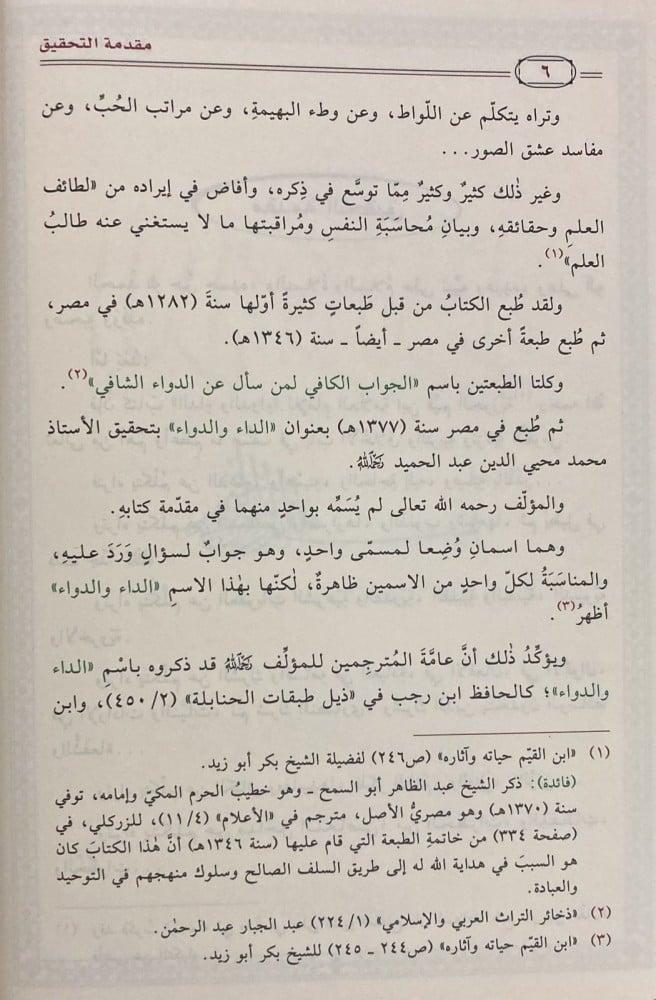 مقدمة التحقيق
٦
وتراه يتكلّم عن اللّواط، وعن وطء البهيمةِ، وعن مراتب الحُبِّ، وعن
مفاسد عشق الصور...
وغير ذٰلك كثيرٌ وكثيرٌ مِمّا توسَّع في ذِكره، وأفاض في إيراده من «لطائف
العلمِ وحقائقهِ، وبيانِ مُحاسَبَةِ النفسِ ومُراقبتها ما لا يستغني عنه طالبُ
العلم»(١).
ولقد طُبع الكتابُ من قبل طَبعاتٍ كثيرةً أوّلها سنةَ (١٢٨٢هـ) في مصر،
ثم طُبع طبعةً أخرى في مصر ـ أيضاً ـ سنة (١٣٤٦هـ).
وكلتا الطبعتين باسم «الجواب الكافي لمن سأل عن الدواء الشافي»(٢).
ثم طُبع في مصر سنة (١٣٧٧هـ) بعنوان «الداء والدواء» بتحقيق الأستاذ
محمد محيي الدين عبد الحميد رَحِمَهُ اللهُ.
والمؤلّف رحمه الله تعالى لم يُسَمِّه بواحدٍ منهما في مقدّمة كتابهِ.
وهما اسمانِ وُضِعا لمسمّى واحدٍ، وهو جوابٌ لسؤالٍ وَرَدَ عليهِ،
والمناسَبَةُ لكلّ واحدٍ من الاسمين ظاهرةٌ، لٰكنّها بهٰذا الاسمِ «الداء والدواء»
أظهرُ(٣).
ويؤكّدُ ذٰلك أنَّ عامَّةَ المُترجِمين للمؤلّف رَحِمَهُ اللهُ قد ذكروه باسْمِ «الداء
والدواء»؛ كالحافظ ابن رجب في «ذيل طبقات الحنابلة» (٢/ ٤٥٠)، وابن
(١) «ابن القيّم حياته وآثاره» (ص٢٤٦) لفضيلة الشيخ بكر أبو زيد.
(فائدة): ذكر الشيخ عبد الظاهر أبو السمح ـ وهو خطيبُ الحرم المكيّ وإمامه، توفي
سنة (١٣٧٠هـ) وهو مصريُّ الأصل، مترجم في «الأعلام» (٤/١١)، للزركلي، في
(صفحة ٣٣٤) من خاتمةِ الطبعة التي قام عليها (سنة ١٣٤٦هـ) أنَّ هٰذا الكتابَ كان
هو السببَ في هداية الله له إلى طريق السلف الصالح وسلوك منهجهم في التوحيد
والعبادة.
(٢) «ذخائر التراث العربي والإسلامي» (١/ ٢٢٤) عبد الجبار عبد الرحمٰن.
(٣) «ابن القيّم حياته وآثاره» (ص٢٤٤ ـ ٢٤٥) للشيخ بكر أبو زيد.